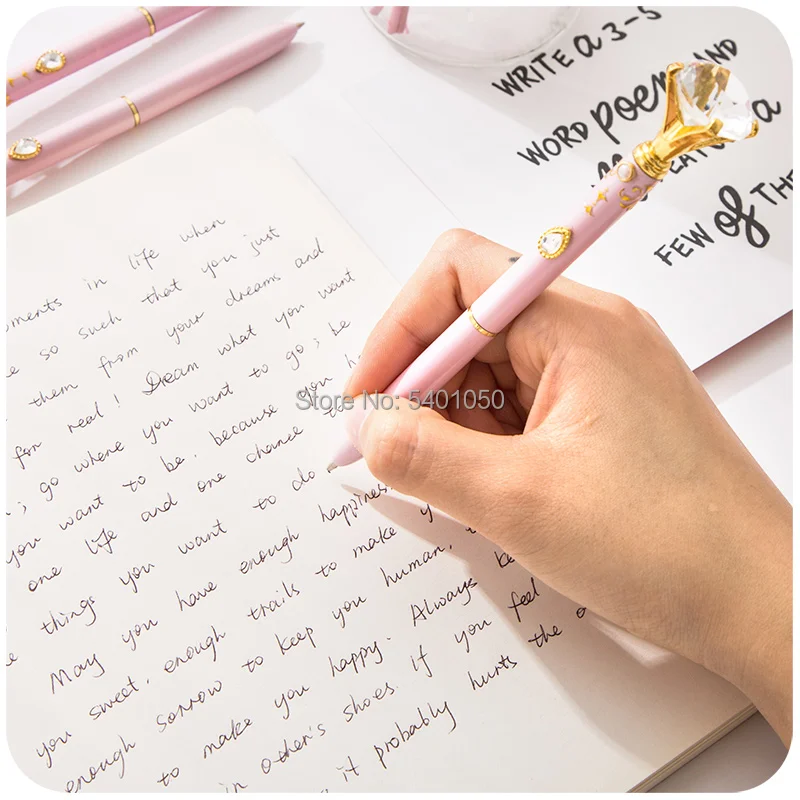 WRITE a 3-5
WORD poem AND
FEATU a
FEW of THE
Store No: 5401050
oments in life when
e so such that you just
them from your dreams and
for real! Dream what you want
; go where you want to go; be
you want to be, because you h
one life and one chance
e things you want to do
May you have enough happiness
you sweet, enough trails to make y
enough sorrow to keep you human,
to make you happy. Always be
in other's shoes. if you feel
it probably hurts the o